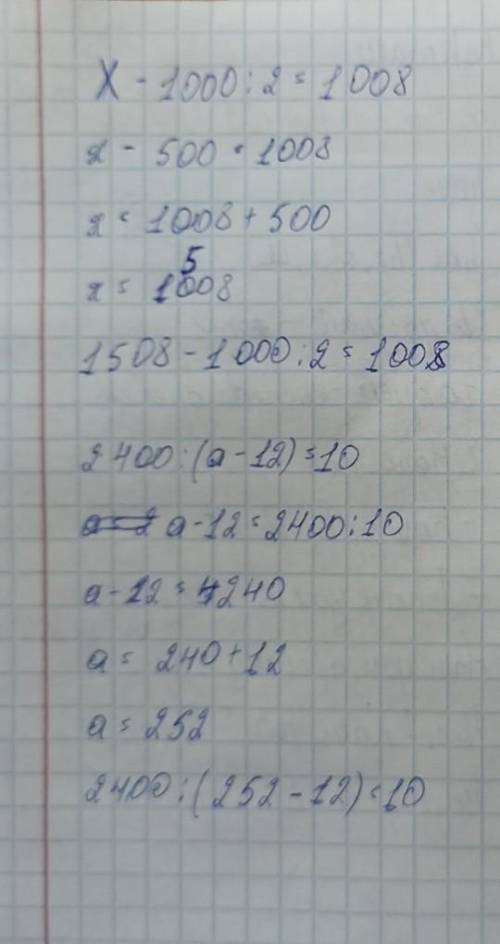 x - 1000 : 2 = 1008
x - 500 = 1008
x = 1008 + 500
x = 1508
1508 - 1000 : 2 = 1008
2400 : (a - 12) = 10
a - 12 = 2400 : 10
a - 12 = 240
a = 240 + 12
a = 252
2400 : (252 - 12) = 10